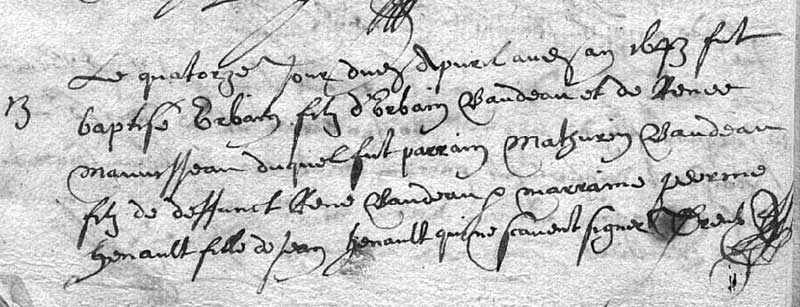 Le quatorze Jour dud Apuril aud an 1643 fut
B baptisé Urbain filz d'Urbain Baudeau et de Renee
Mauusseau duquel fut parrain Mathurin Baudeau
filz de deffunct René Baudeau marraine perrine
henault fille de Jean henault qui ne scauent signer